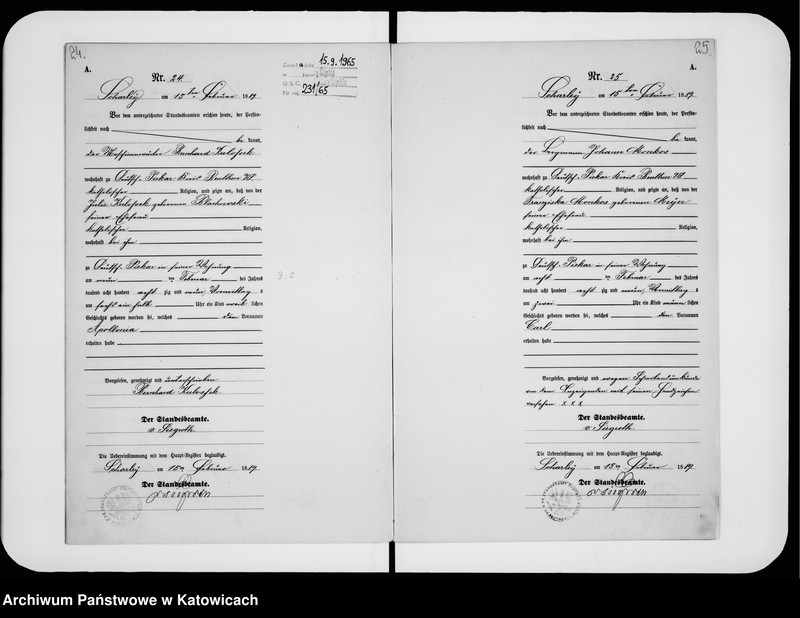 24.
A.
Nr. 24
Scharley am 15 ten Februar 1889.
Vor dem unterzeichneten Standesbeamten erschien heute, der Persön-
lichkeit nach
be kannt,
der Maschinenwärter Bernhard
wohnhaft zu Deutsch Piekar Kreis Beuthen O/S
katholischer Religion, und zeigte an, daß von der
Julie geborenen
seiner Ehefrau
katholischer Religion,
wohnhaft bei ihm
zu Deutsch Piekar in seiner Wohnung
am neun ten Februar des Jahres
tausend acht hundert acht zig und neun Vormittag s
um sechs ein halb Uhr ein Kind weib lichen
Geschlechts geboren worden sei, welches den Vornamen
Apollonia
erhalten habe
Vorgelesen, genehmigt und unterschrieben
Bernhard
Der Standesbeamte.
Die Uebereinstimmung mit dem Haupt-Register beglaubigt.
Scharley am 15ten Februar 1889.
Der Standesbeamte.
15.9.1965
231/65
25.
A.
Nr. 25
Scharley am 15 ten Februar 1889.
Vor dem unterzeichneten Standesbeamten erschien heute, der Persön-
lichkeit nach
be kannt,
der Bergmann Johann Monkos
wohnhaft zu Deutsch Piekar Kreis Beuthen O/S
katholischer Religion, und zeigte an, daß von der
Franziska Monkos geborenen Meijer
seiner Ehefrau
katholischer Religion,
wohnhaft bei ihm
zu Deutsch Piekar in seiner Wohnung
am acht ten Februar des Jahres
tausend acht hundert acht zig und neun Vormittag s
um zwei Uhr ein Kind männ lichen
Geschlechts geboren worden sei, welches den Vornamen
Carl
erhalten habe
Vorgelesen, genehmigt und wegen Schreibensunkunde
von dem Anzeigenden mit seinem Handzeichen
versehen x x x
Der Standesbeamte.
Die Uebereinstimmung mit dem Haupt-Register beglaubigt.
Scharley am 15ten Februar 1889.
Der Standesbeamte.
Archiwum Państwowe w Katowicach